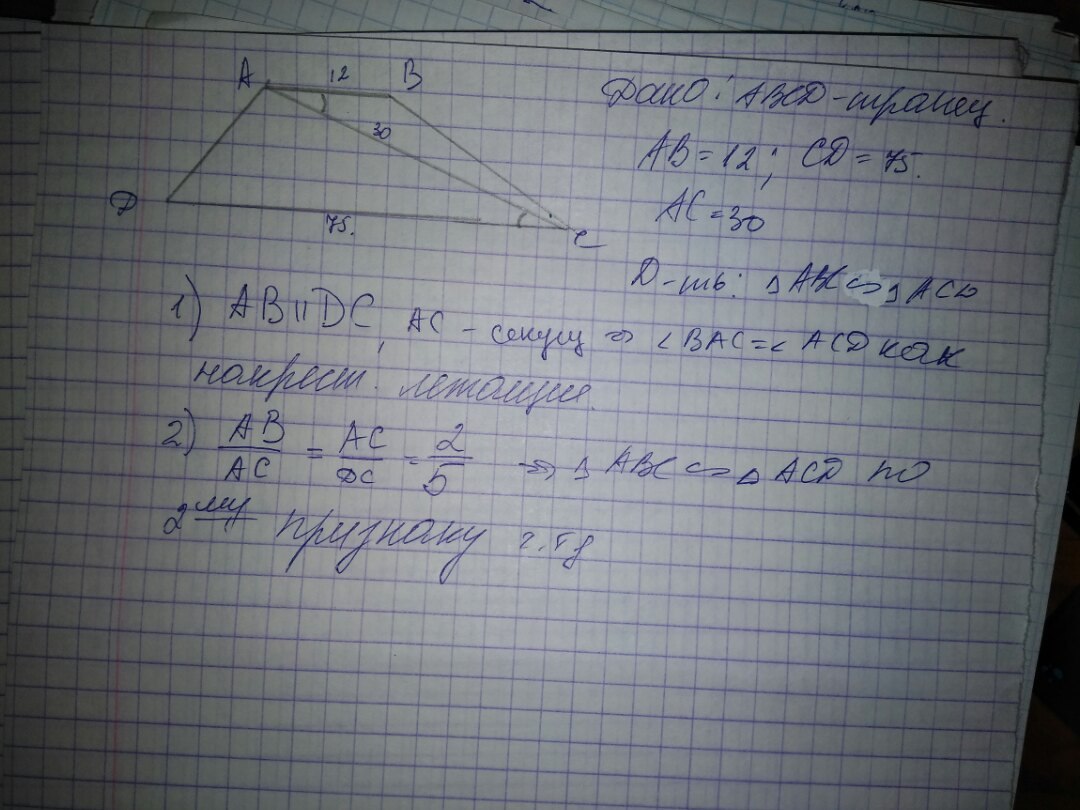 A 12 B
30
D 75. C
Дано: ABCD - трапец.
AB = 12; CD = 75.
AC = 30
Д-ть: △ABC ∽ △ACD
1) AB II DC, AC - секущ ⇒ ∠BAC = ∠ACD как
накрест. лежащие.
2) AB/AC = AC/DC = 2/5 ⇒ △ABC ∽ △ACD по
2му признаку ч.тд